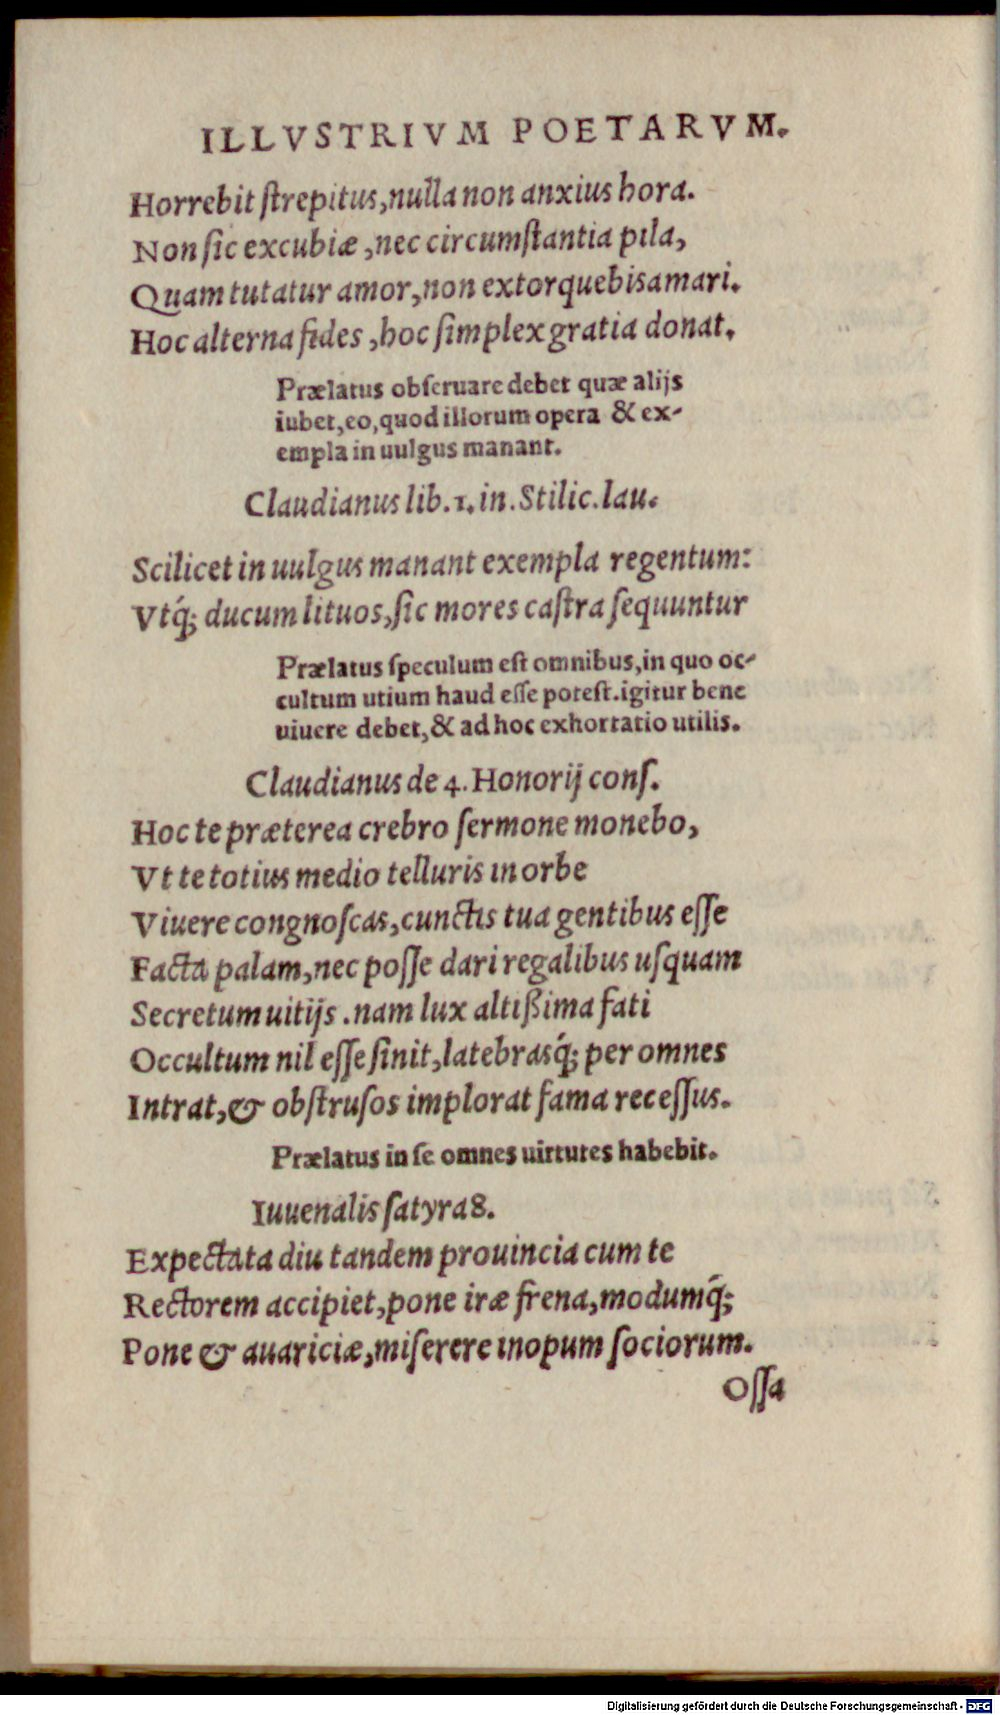 ILLVSTRIVM POETARVM.
Horrebit ſtrepitus,nulla non anxius hora.
Non ſic excubiæ ,nec circumſtantia pila,
Quam tutatur amor,non extorquebis amari.
Hoc alterna fides ,hoc ſimplex gratia donat.
Prælatus obſeruare debet quæ alijs
iubet,eo,quod illorum opera & ex-
empla in uulgus manant.
Claudianus lib.1.in.Stilic.lau.
Scilicet in uulgus manant exempla regentum:
Vtq́; ducum lituos,ſic mores caſtra ſequuntur
Prælatus ſpeculum eſt omnibus,in quo oc-
cultum utium haud eſſe poteſt.igitur bene
uiuere debet,& ad hoc exhortatio utilis.
Claudianus de 4. Honorij conſ.
Hoc te præterea crebro ſermone monebo,
Vt te totius medio telluris in orbe
Viuere congnoſcas,cunctis tua gentibus eſſe
Facta palam,nec poſſe dari regalibus uſquam
Secretum uitijs .nam lux altißima fati
Occultum nil eſſe ſinit,latebrasq́; per omnes
Intrat,& obſtruſos implorat fama receſſus.
Prælatus in ſe omnes uirtutes habebit.
Iuuenalis ſatyra 8.
Expectata diu tandem prouincia cum te
Rectorem accipiet,pone iræ frena,modumq́;
Pone & auariciæ,miſerere inopum ſociorum.
Oſſa
Digitalisierung gefördert durch die Deutsche Forschungsgemeinschaft - DFG